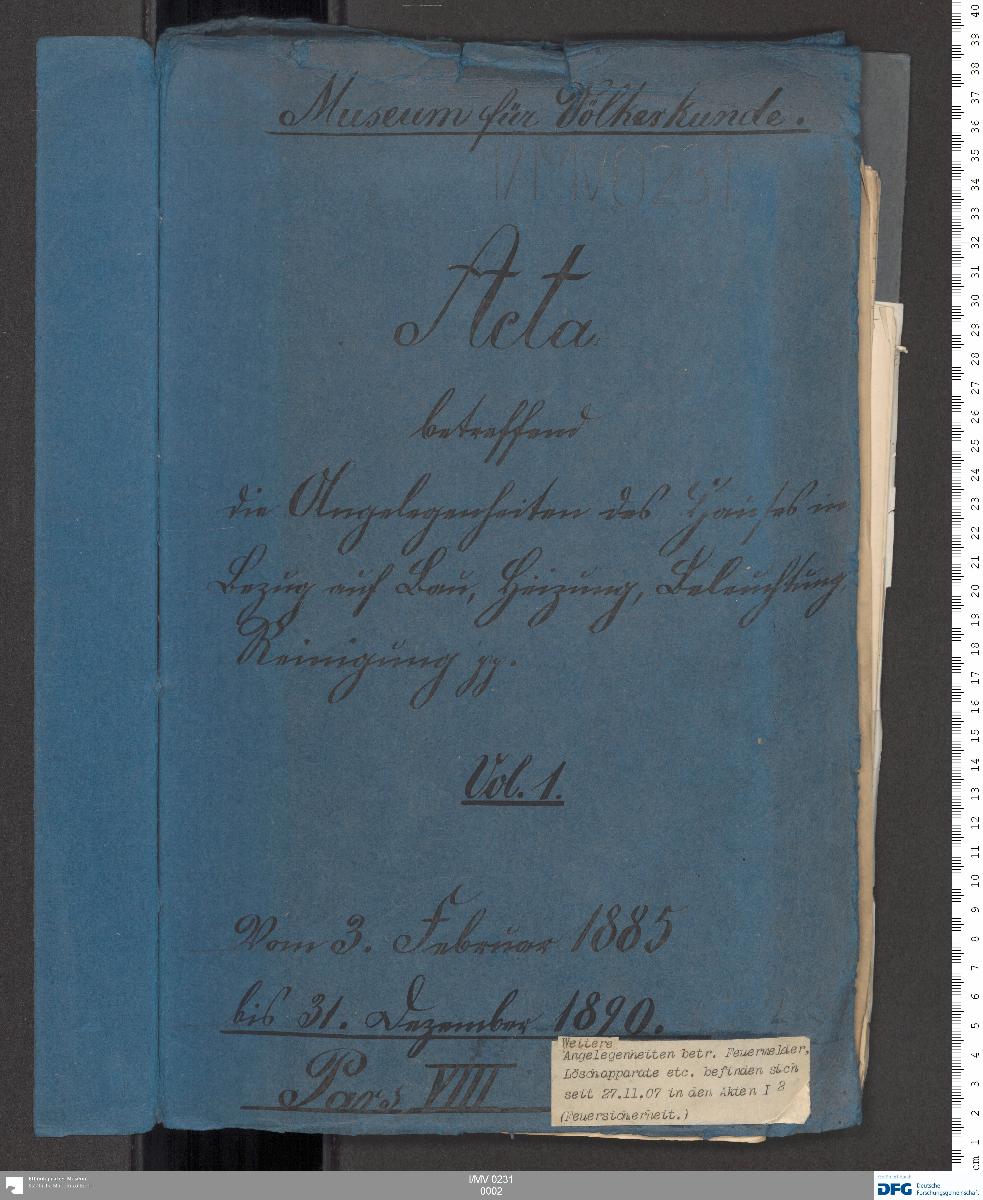 Museum für Völkerkunde.
I/MV 0231
Acta
betreffend
die Angelegenheiten des Hauses in
Bezug auf Bau, Heizung, Beleuchtung,
Reinigung pp.
Vol. 1.
Vom 3. Februar 1885
bis 31. Dezember 1890.
Pars VIII
Weitere
Angelegenheiten betr. Feuermelder,
Löschapparate etc. befinden sich
seit 27.11.07 in den Akten I 8
(Feuersicherheit.)
cm 1 2 3 4 5 6 7 8 9 10 11 12 13 14 15 16 17 18 19 20 21 22 23 24 25 26 27 28 29 30 31 32 33 34 35 36 37 38 39 40
Ethnologisches Museum
I/MV 0231
0002
DFG Deutsche
Forschungsgemeinschaft